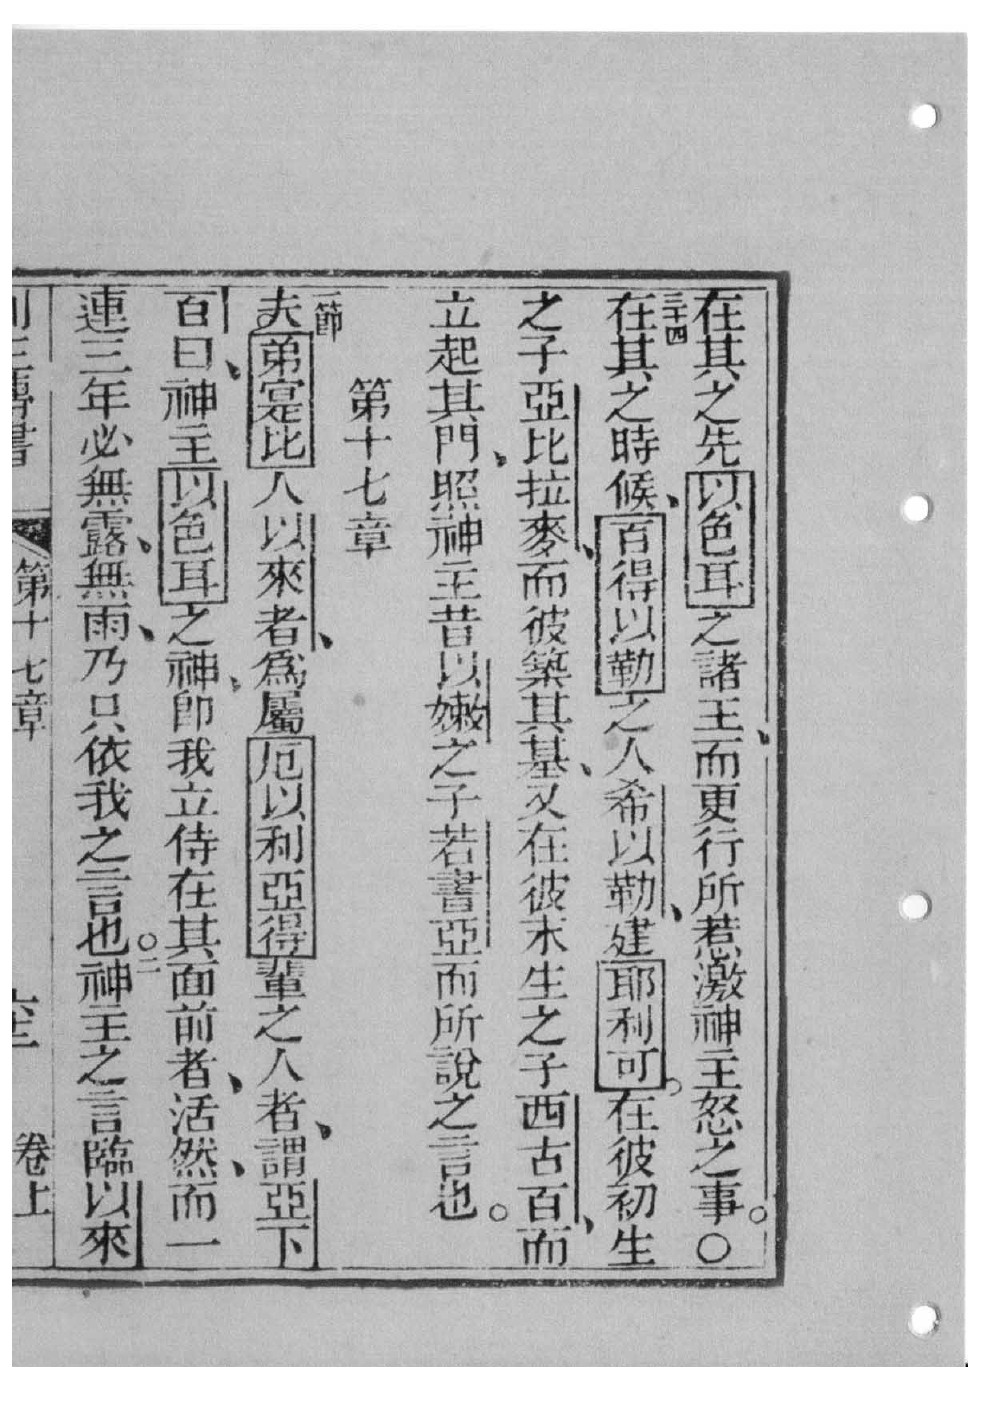 在其之先以色耳之諸王、而更行所惹激神主怒之事。○
三十四
在其之時候、百得以勒之人希以勒、建耶利可。在彼初生
之子亞比拉麥、而彼築其基、又在彼末生之子西古百、而
立起其門、照神主昔以嫩之子若書亞而所說之言也。
第十七章
一節
夫弟寔比人以來者、爲屬厄以利亞得輩之人者、謂亞下
百曰、神主以色耳之神、卽我立侍在其面前者、活然、而一
連三年必無露、無雨、乃只依我之言也。○二神主之言臨以來
第十七章 卷上